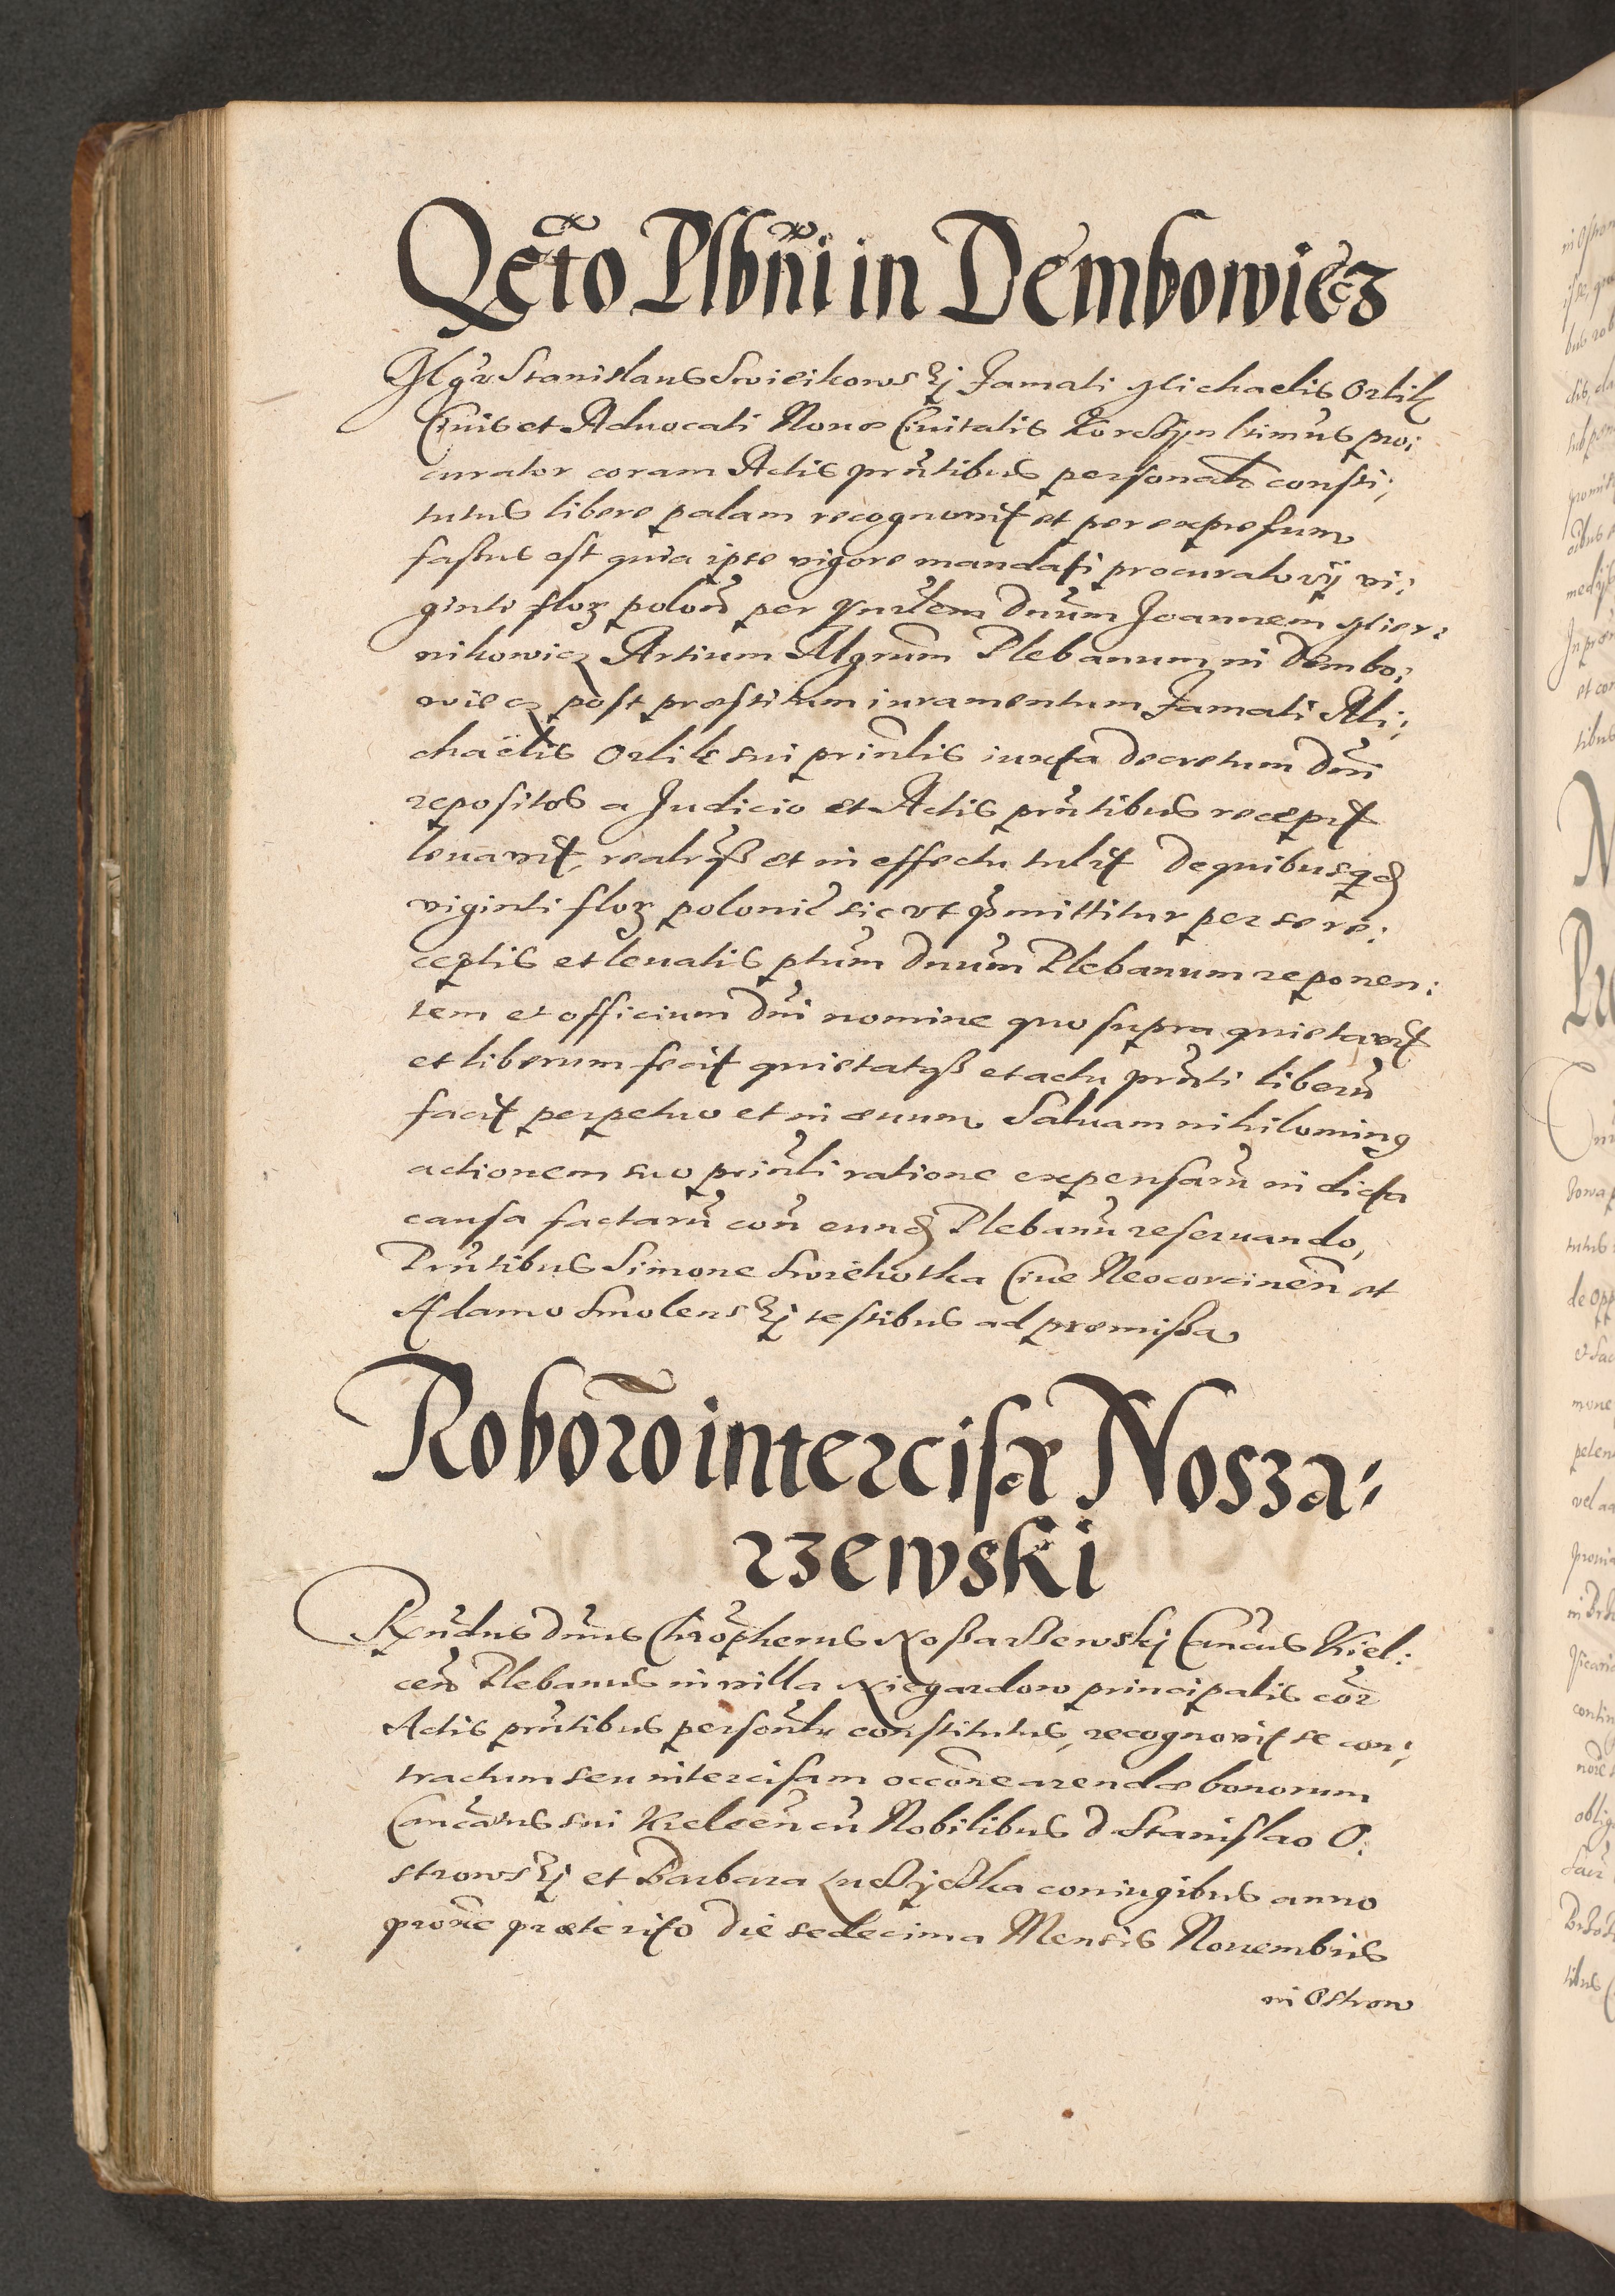 Qc̃to Plbñi in Dembowiecz
Mgr Stanislaus Swieikowskj Famati Michaelis Orlik
Ciuis et Aduocati Nouæ Ciuitatis Korczyn ltimus pro:
curator coram Actis pr̃ntibus personalr consti:
tutus libere palam recognouit et per expressum
fassus est quia ipse vigore mandati procuratorij vi:
ginti floz polon̄ per Vnrlem Dnum Joannem Mier:
nikowicz Artium Mgrum Plebanum in Dembo:
wiecz post præstitum iuramentum Famati Mi:
chaëlis Orlik sui prin̄lis iuxta Decretum Dni
repositos a Judicio et Actis prñtibus recæpit
leuauit, realrqß et in effectu tulit De quibusqd
viginti floz poloniē sic vt p̄mittitur per se re:
ceptis et leuatis ptum Dnum Plebanum reponen:
tem et officium Dni nomine quo supra quietauit
et liberum fecit quietatqß et actu prñti liberū
facit perpetuo et in æuum. Saluam nihilominq
actionem suo prin̄li ratione expensarū in dicta
causa factarū con̄ eund Plebanū reseruando,
Prñtibus Simone Swiehotka Ciue Neocorcinen̄ et
Adamo Smolenskj testibus ad præmissa
Roborõ intercisæ Nosza:
rzewski
Rñdus dñus Chrõpherus Noßarßewskj Cancus Kiel:
cen̄ Plebanus in villa Niegardow principalis cor̄
Actis prñtibus personlr constitutus, recognouit se con:
tractum seu intercisam occõne arendæ bonorum
Canc̄atus sui Kielcen̄ cū Nobilibus d Stanislao O:
strowskj et Barbara coniugibus anno
proxe præterito die sedecima Mensis Nouembris
in Ostrow